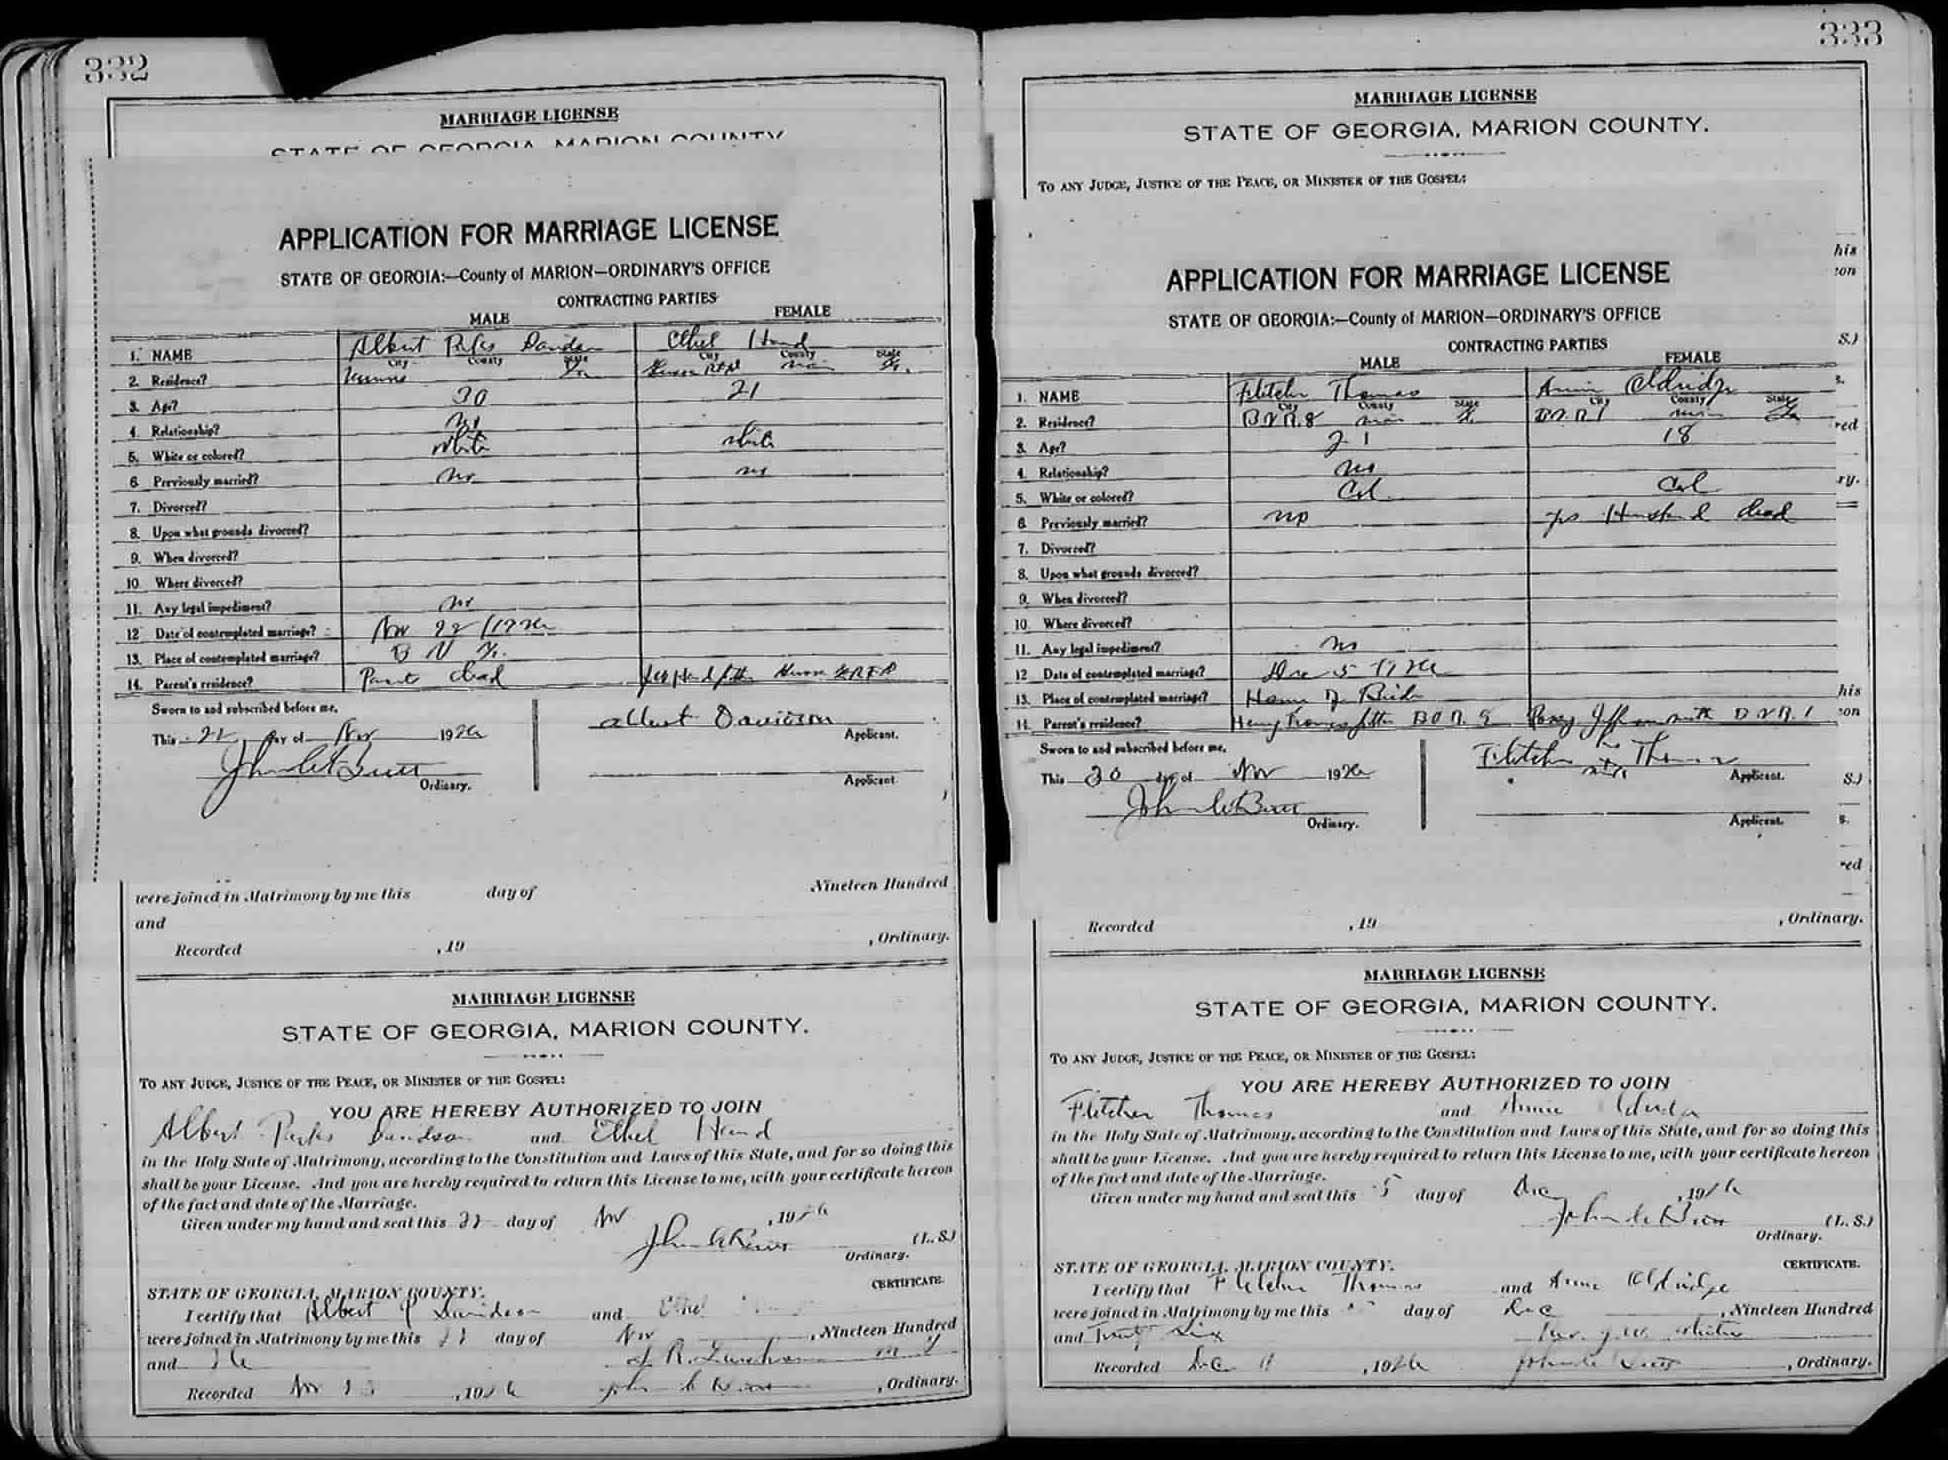 332
MARRIAGE LICENSE
STATE OF GEORGIA, MARION COUNTY
APPLICATION FOR MARRIAGE LICENSE
STATE OF GEORGIA:—County of MARION—ORDINARY'S OFFICE
CONTRACTING PARTIES
MALE FEMALE
1. NAME Albert Parks Ethel Hand
City County State City County State
2. Residence? Ga
3. Age? 30 21
4. Relationship? no
5. White or colored? white white
6 Previously married? no no
7. Divorced?
8. Upon what grounds divorced?
9. When divorced?
10. Where divorced?
11. Any legal impediment? no
12 Date of contemplated marriage? Nov 22 1926
13. Place of contemplated marriage? B V
14. Parent's residence? dead
Sworn to and subscribed before me,
This 22 day of Nov 1926
Albert Davidson
Applicant.
John Butt
Ordinary.
Applicant.
were joined in Matrimony by me this day of Nineteen Hundred
and
Recorded , 19 , Ordinary.
MARRIAGE LICENSE
STATE OF GEORGIA, MARION COUNTY.
TO ANY JUDGE, JUSTICE OF THE PEACE, OR MINISTER OF THE GOSPEL:
YOU ARE HEREBY AUTHORIZED TO JOIN
Albert Parks Davidson and Ethel Hand
in the Holy State of Matrimony, according to the Constitution and Laws of this State, and for so doing this
shall be your License. And you are hereby required to return this License to me, with your certificate hereon
of the fact and date of the Marriage.
Given under my hand and seal this 22 day of Nov , 1926
John Butt (L. S.)
Ordinary.
CERTIFICATE.
STATE OF GEORGIA, MARION COUNTY.
I certify that Albert P Davidson and Ethel
were joined in Matrimony by me this day of Nov , Nineteen Hundred
and 26
Recorded Nov , 1926 John Butt , Ordinary.
333
MARRIAGE LICENSE
STATE OF GEORGIA, MARION COUNTY.
TO ANY JUDGE, JUSTICE OF THE PEACE, OR MINISTER OF THE GOSPEL:
his
APPLICATION FOR MARRIAGE LICENSE
STATE OF GEORGIA:—County of MARION—ORDINARY'S OFFICE
CONTRACTING PARTIES
MALE FEMALE
1. NAME Fletcher Thomas Annie Oldridge
City County State City County State
2. Residence? B V R. 8 B V R 1 Ga
3. Age? 21 18
4. Relationship? no
5. White or colored? Col Col
6. Previously married? no yes Husband dead
7. Divorced?
8. Upon what grounds divorced?
9. When divorced?
10. Where divorced?
11. Any legal impediment? no
12 Date of contemplated marriage? Dec 5 1926
13. Place of contemplated marriage? Home of Bride
14. Parent's residence? Henry Thomas father
Sworn to and subscribed before me,
This 30 day of Nov 1926
Fletcher Thomas
Applicant.
John Butt
Ordinary.
Applicant.
Recorded , 19 , Ordinary.
MARRIAGE LICENSE
STATE OF GEORGIA, MARION COUNTY.
TO ANY JUDGE, JUSTICE OF THE PEACE, OR MINISTER OF THE GOSPEL:
YOU ARE HEREBY AUTHORIZED TO JOIN
Fletcher Thomas and Annie
in the Holy State of Matrimony, according to the Constitution and Laws of this State, and for so doing this
shall be your License. And you are hereby required to return this License to me, with your certificate hereon
of the fact and date of the Marriage.
Given under my hand and seal this 5 day of Dec , 1926
John Butt (L. S.)
Ordinary.
CERTIFICATE.
STATE OF GEORGIA, MARION COUNTY.
I certify that Fletcher Thomas and Annie Oldridge
were joined in Matrimony by me this day of Dec , Nineteen Hundred
and Twenty Six Rev. J. W.
Recorded Dec , 1926 John Butt , Ordinary.